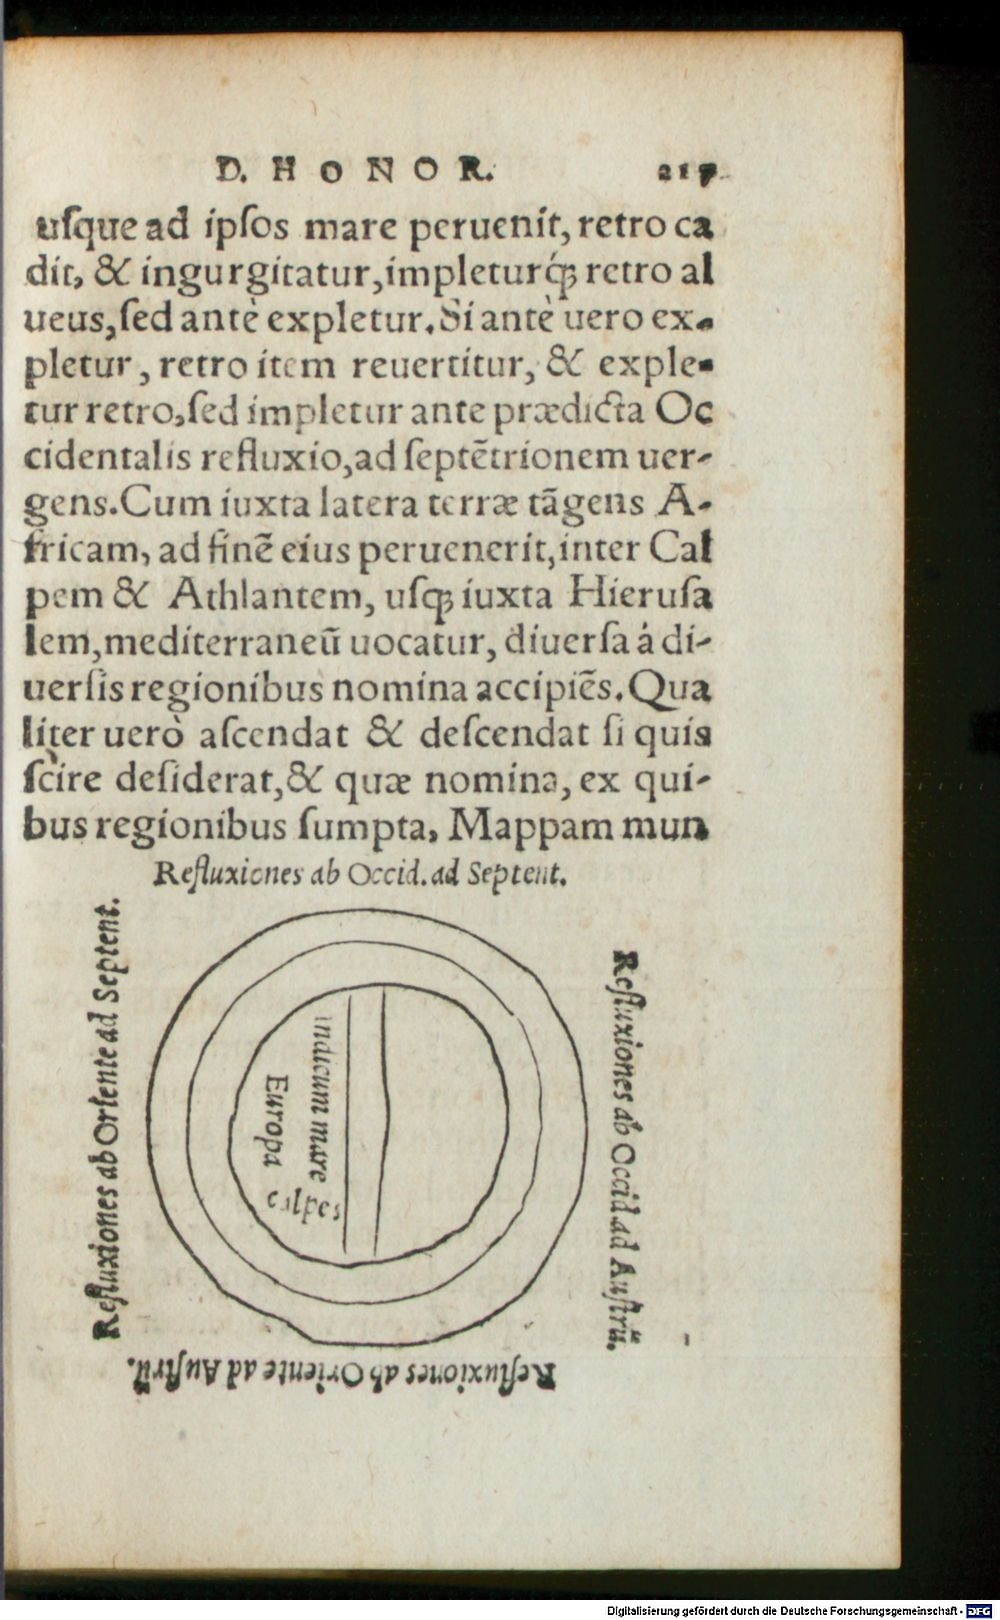 D. HONOR. 217
uſque ad ipſos mare peruenit, retro ca
dit, & ingurgitatur, impleturq́ꝫ retro al
ueus, ſed antè expletur. Si antè uero ex-
pletur, retro item reuertitur, & exple-
tur retro, ſed impletur ante prædicta Oc
cidentalis refluxio, ad ſeptẽtrionem uer-
gens. Cum iuxta latera terræ tãgens A-
fricam, ad finẽ eius peruenerit, inter Cal
pem & Athlantem, uſqꝫ iuxta Hieruſa
lem, mediterraneũ uocatur, diuerſa á di-
uerſis regionibus nomina accipiẽs. Qua
liter uerò aſcendat & deſcendat ſi quis
ſcire deſiderat, & quæ nomina, ex qui-
bus regionibus ſumpta, Mappam mun
Refluxiones ab Occid. ad Septent.
Refluxiones ab Oriente ad Septent.
indicum mare
Europa
Refluxiones ab Occid ad Auſtrũ.
Refluxiones ab Oriente ad Auſtrũ.
Digitalisierung gefördert durch die Deutsche Forschungsgemeinschaft - DFG